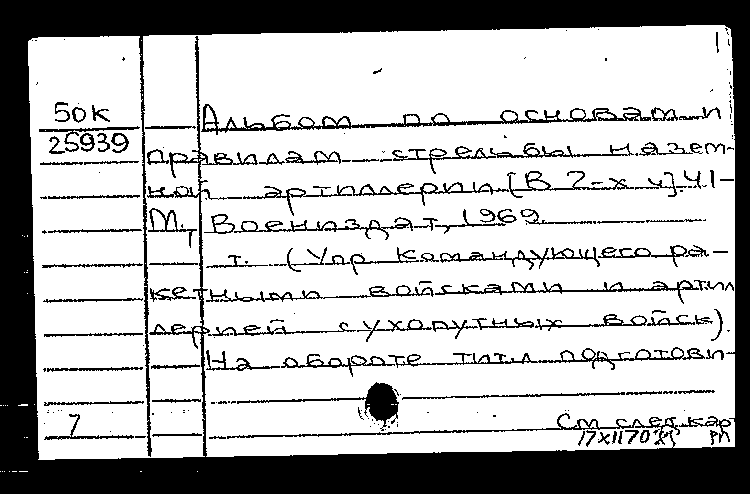 1
50К Альбом по основам и
25939 правилам стрельбы назем-
ной артиллерии [В 2-х ч]. Ч1-
М., Воениздат, 1969.
т. (Упр Командующего ра-
кетными войсками и артил
лерией сухопутных войск).
На обороте титл подготови-
7 См след кар
17 XII 70